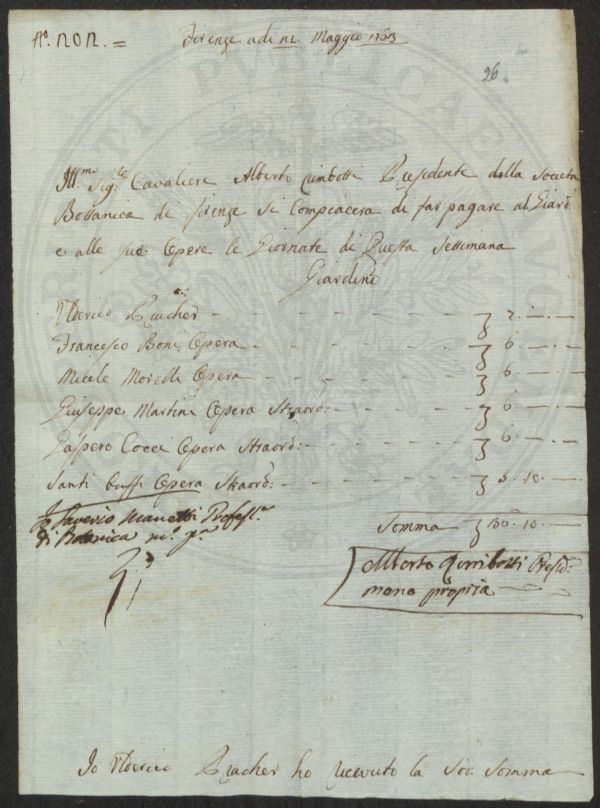 Firenze adi 12 Maggio 1753
26
Ill.mo Sig.re Cavaliere Alberto Rimbotti Presidente della Societa
Bottanica di Firenze si Compiacera di far pagare al Giard:
e alle sue Opere le Giornate di Questa Settimana
Giardino
Uderico Prucher
Francesco Boni Opera 6
Michele Morelli Opera 6
Giuseppe Martini Opera Straord: 6
Gaspero Cocci Opera Straord: 6
Santi Opera Straord: 5. 10
Io Saverio Manetti Profess.re
di Botanica
Somma 10
Alberto Rimbotti Presid:
mano propria
Io Uderico Prucher ho ricevuto la Sod: Somma
SOCIETATI PVBLICAE